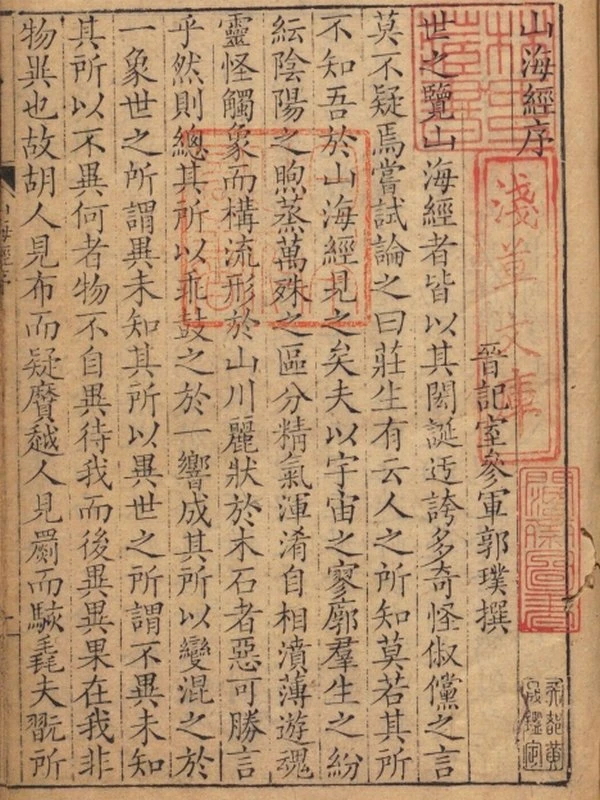 山海經序
晉記室參軍郭璞撰
世之覽山海經者皆以其閎誕迃誇多奇怪俶儻之言
莫不疑焉嘗試論之曰莊生有云人之所知莫若其所
不知吾於山海經見之矣夫以宇宙之寥廓羣生之紛
紜陰陽之煦蒸萬殊之區分精氣渾淆自相濆薄遊魂
靈怪觸象而構流形於山川麗狀於木石者惡可勝言
乎然則總其所以乖鼓之於一響成其所以變混之於
一象世之所謂異未知其所以異世之所謂不異未知
其所以不異何者物不自異待我而後異異果在我非
物異也故胡人見布而疑黂越人見罽而駭毳夫翫所
淺草文庫
山海經序